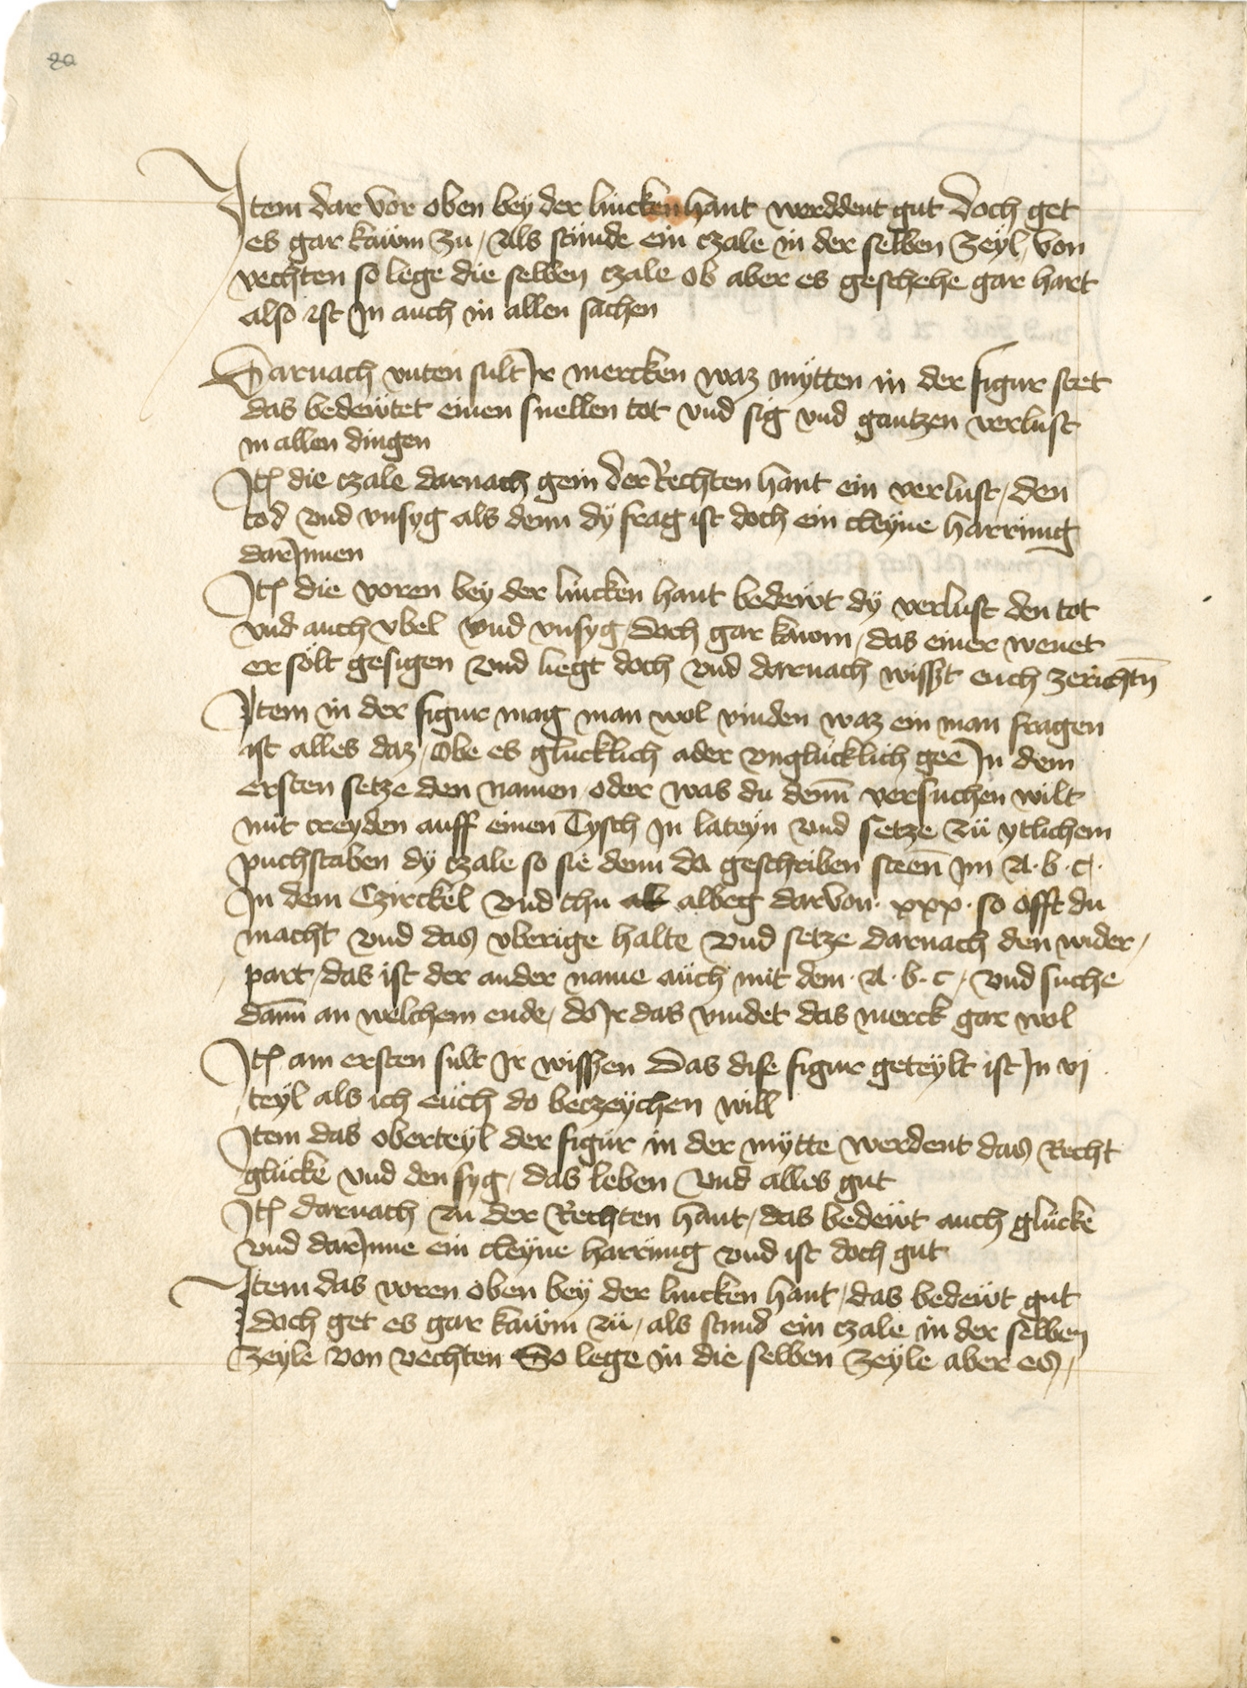 Item dar vor oben bey der lincken hant werddent gut Doch get
es gar kawm zu / Als stunde ein czale in der selben Zeyl / von
rechten so lege die selben czale ob aber es geschehe gar hart
also ist Jn auch in allen sachen
Darnach vnten sult Jr mercken waz mytten in der figur stet
das bedewtet einen snellen tot vnd sig vnd gantzen verlust
in allen dingen
Jtẽ die czale darnach gein der Rechten hant ein verlust / den
tod vnd vnsyg als denn dy frag ist doch ein cleyne harrung
dar Jnnen
Jtẽ die voren bey der lincken hant bedewt dy verlust den tot
vnd auch vbel vnd vnsyg doch gar kawm / das einer wenet
er sölt gesigen vnd liegt doch vnd darnach wisßt euch zerichtñ
Item in der figur mag man wol vinden waz ein man fragen
ist alles daz / Obe es glücklich ader vnglücklich geē Jn dem
ersten setze den namen oder was du deñn versuchen wilt
mit creyden auff einen Tysch Jn lateyn vnd setze zü ytlichem
puchstaben dy czale so sie denn da geschriben steeñ Jm A · b · c ·
Jn dem Czirckel vnd thu ab albeg darvon · xxx · so offt du
macht vnd das vberige halte vnd setze darnach den wider /
part / das ist der ander name aüch mit dem · A · b · c / vnd suche
dañn an welchem ende / do Jr das vindet das merck gar wol
Jtẽ am ersten sult Jr wisßen Das dise figur geteylt ist Jn vj
teyl als ich euch do beczeychen will
Item das oberteyl der figür in der mytte werdent das Recht
glücke vnd den syg / das leben vnd alles gut
Jtẽ darnach zu der Rechten hant / das bedewt auch glücke
vnd dar Jnne ein cleyne harrung vnd ist doch gut
Item das voren oben bey der lincken hant / das bedewt gut
doch get es gar kawm zü / als stund ein czale in der selben
Zeyle von rechten So lege in die selben Zeyle aber es /